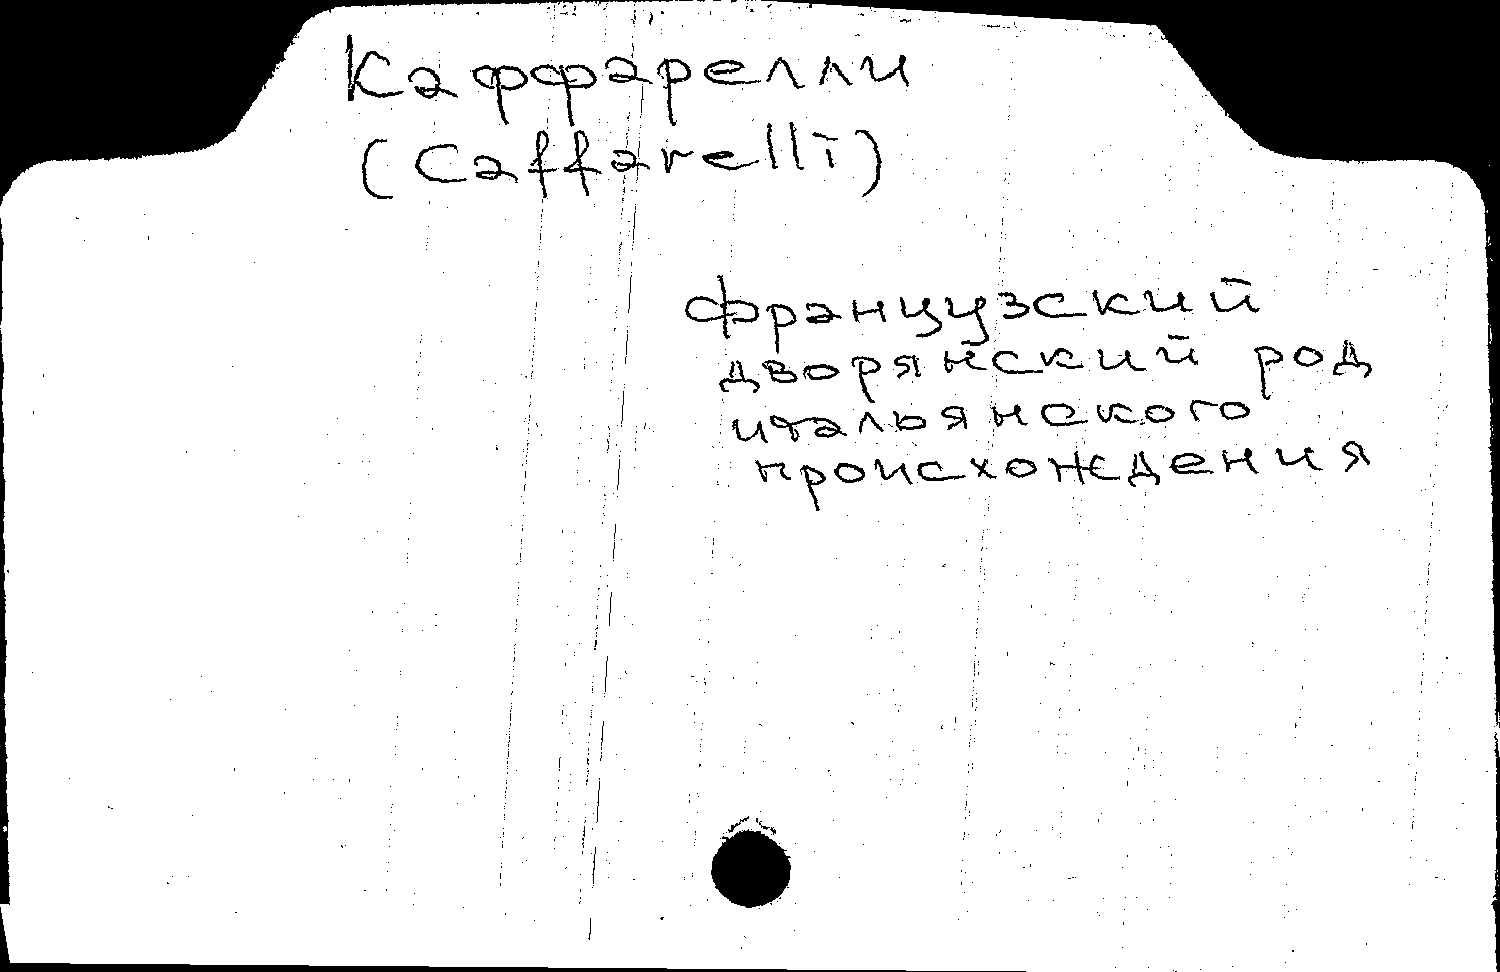 Каффарелли
(Caffarelli)
французский
дворянский род
итальянского
происхождения